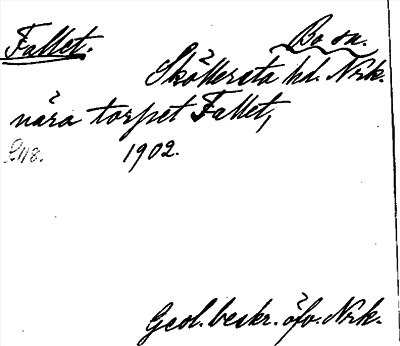 Fallet.
Bo sn.
Sköllersta hd. Nrk.
nära torpet Fallet,
1902.
Geol. beskr. öfv. Nrk.